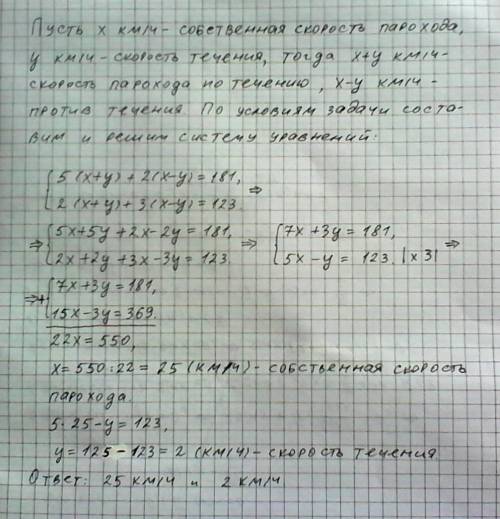 Пусть x км/ч - собственная скорость парохода,
y км/ч - скорость течения, тогда x+y км/ч-
скорость парохода по течению, x-y км/ч -
против течения. По условиям задачи соста-
вим и решим систему уравнений:
{5(x+y)+2(x-y)=181, ⇒
{2(x+y)+3(x-y)=123.
⇒ {5x+5y+2x-2y=181, ⇒ {7x+3y=181,
{2x+2y+3x-3y=123. {5x-y= 123. |x3| ⇒
⇒+ {7x+3y=181,
{15x-3y=369.
22x=550,
x=550:22=25 (км/ч)- собственная скорость
парохода.
5·25-y=123,
y=125-123=2 (км/ч)- скорость течения
Ответ: 25 км/ч и 2 км/ч